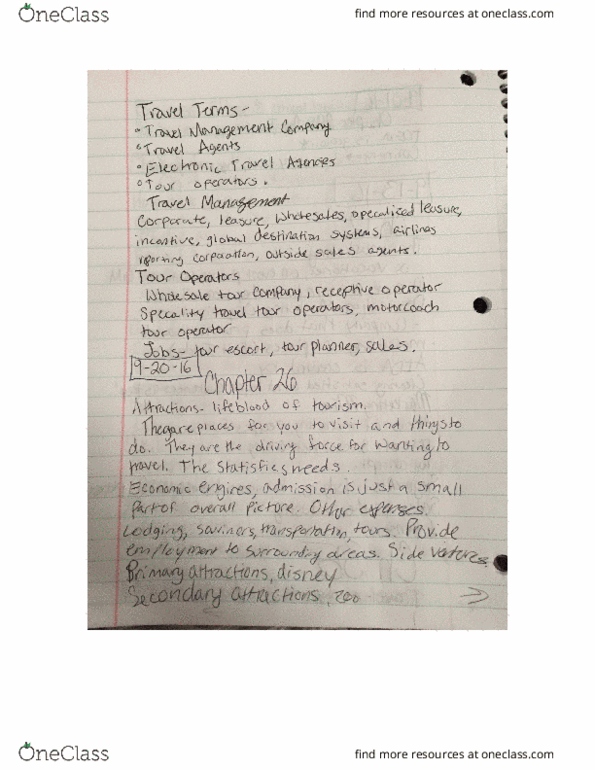 OneClass
find more resources at oneclass.com
Travel Terms -
• Travel Management Company
• Travel Agents
• Electronic Travel Agencies
• Tour operators.
Travel Management
Corporate, leasure, wholesales, specialized leasure,
incentive, global destination systems, airlines
reporting corporation, outside sales agents.
Tour Operators
Wholesale tour company, receptive operator
Speciality travel tour operators, motorcoach
tour operator
Jobs- tour escort, tour planner, sales.
9-20-16
Chapter 26
Attractions- lifeblood of tourism.
They are places for you to visit and things to
do. They are the driving force for wanting to
travel. The statisfies needs.
Economic engines, admission is just a small
part of overall picture. Other expenses.
Lodging, souviners, transportation, tours. Provide
employment to surrounding areas. Side ventures.
Primary attractions, disney
Secondary attractions, zoo
OneClass
find more resources at oneclass.com